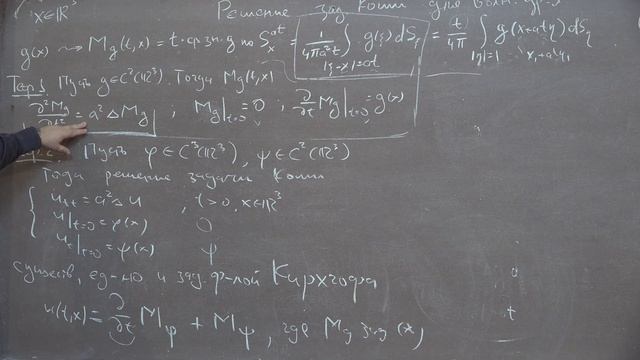 x∈ℝ³ Решение зад. Коши для волн. ур.
g(x) ⇝ M_g(t,x) = t·ср.зн. g по S_x^{at} = 1/(4πa²t) ∫_{|ξ-x|=at} g(ξ) dS_ξ = t/4π ∫_{|η|=1} g(x+atη) dS_η
Теор 1. Пусть g∈C²(ℝ³). Тогда M_g(t,x)
∂²M_g/∂t² = a² Δ M_g ; M_g|_{t=0} = 0 ; ∂/∂t M_g|_{t=0} = g(x)
Пусть φ∈C³(ℝ³), ψ∈C²(ℝ³)
Тогда решение задачи Коши
u_tt = a²Δu , t>0, x∈ℝ³
u|_{t=0} = φ(x) 0
u_t|_{t=0} = ψ(x) ψ
существ, ед-но и зад. ф-лой Кирхгофа
u(t,x) = ∂/∂t M_φ + M_ψ , где M_g зад (*)